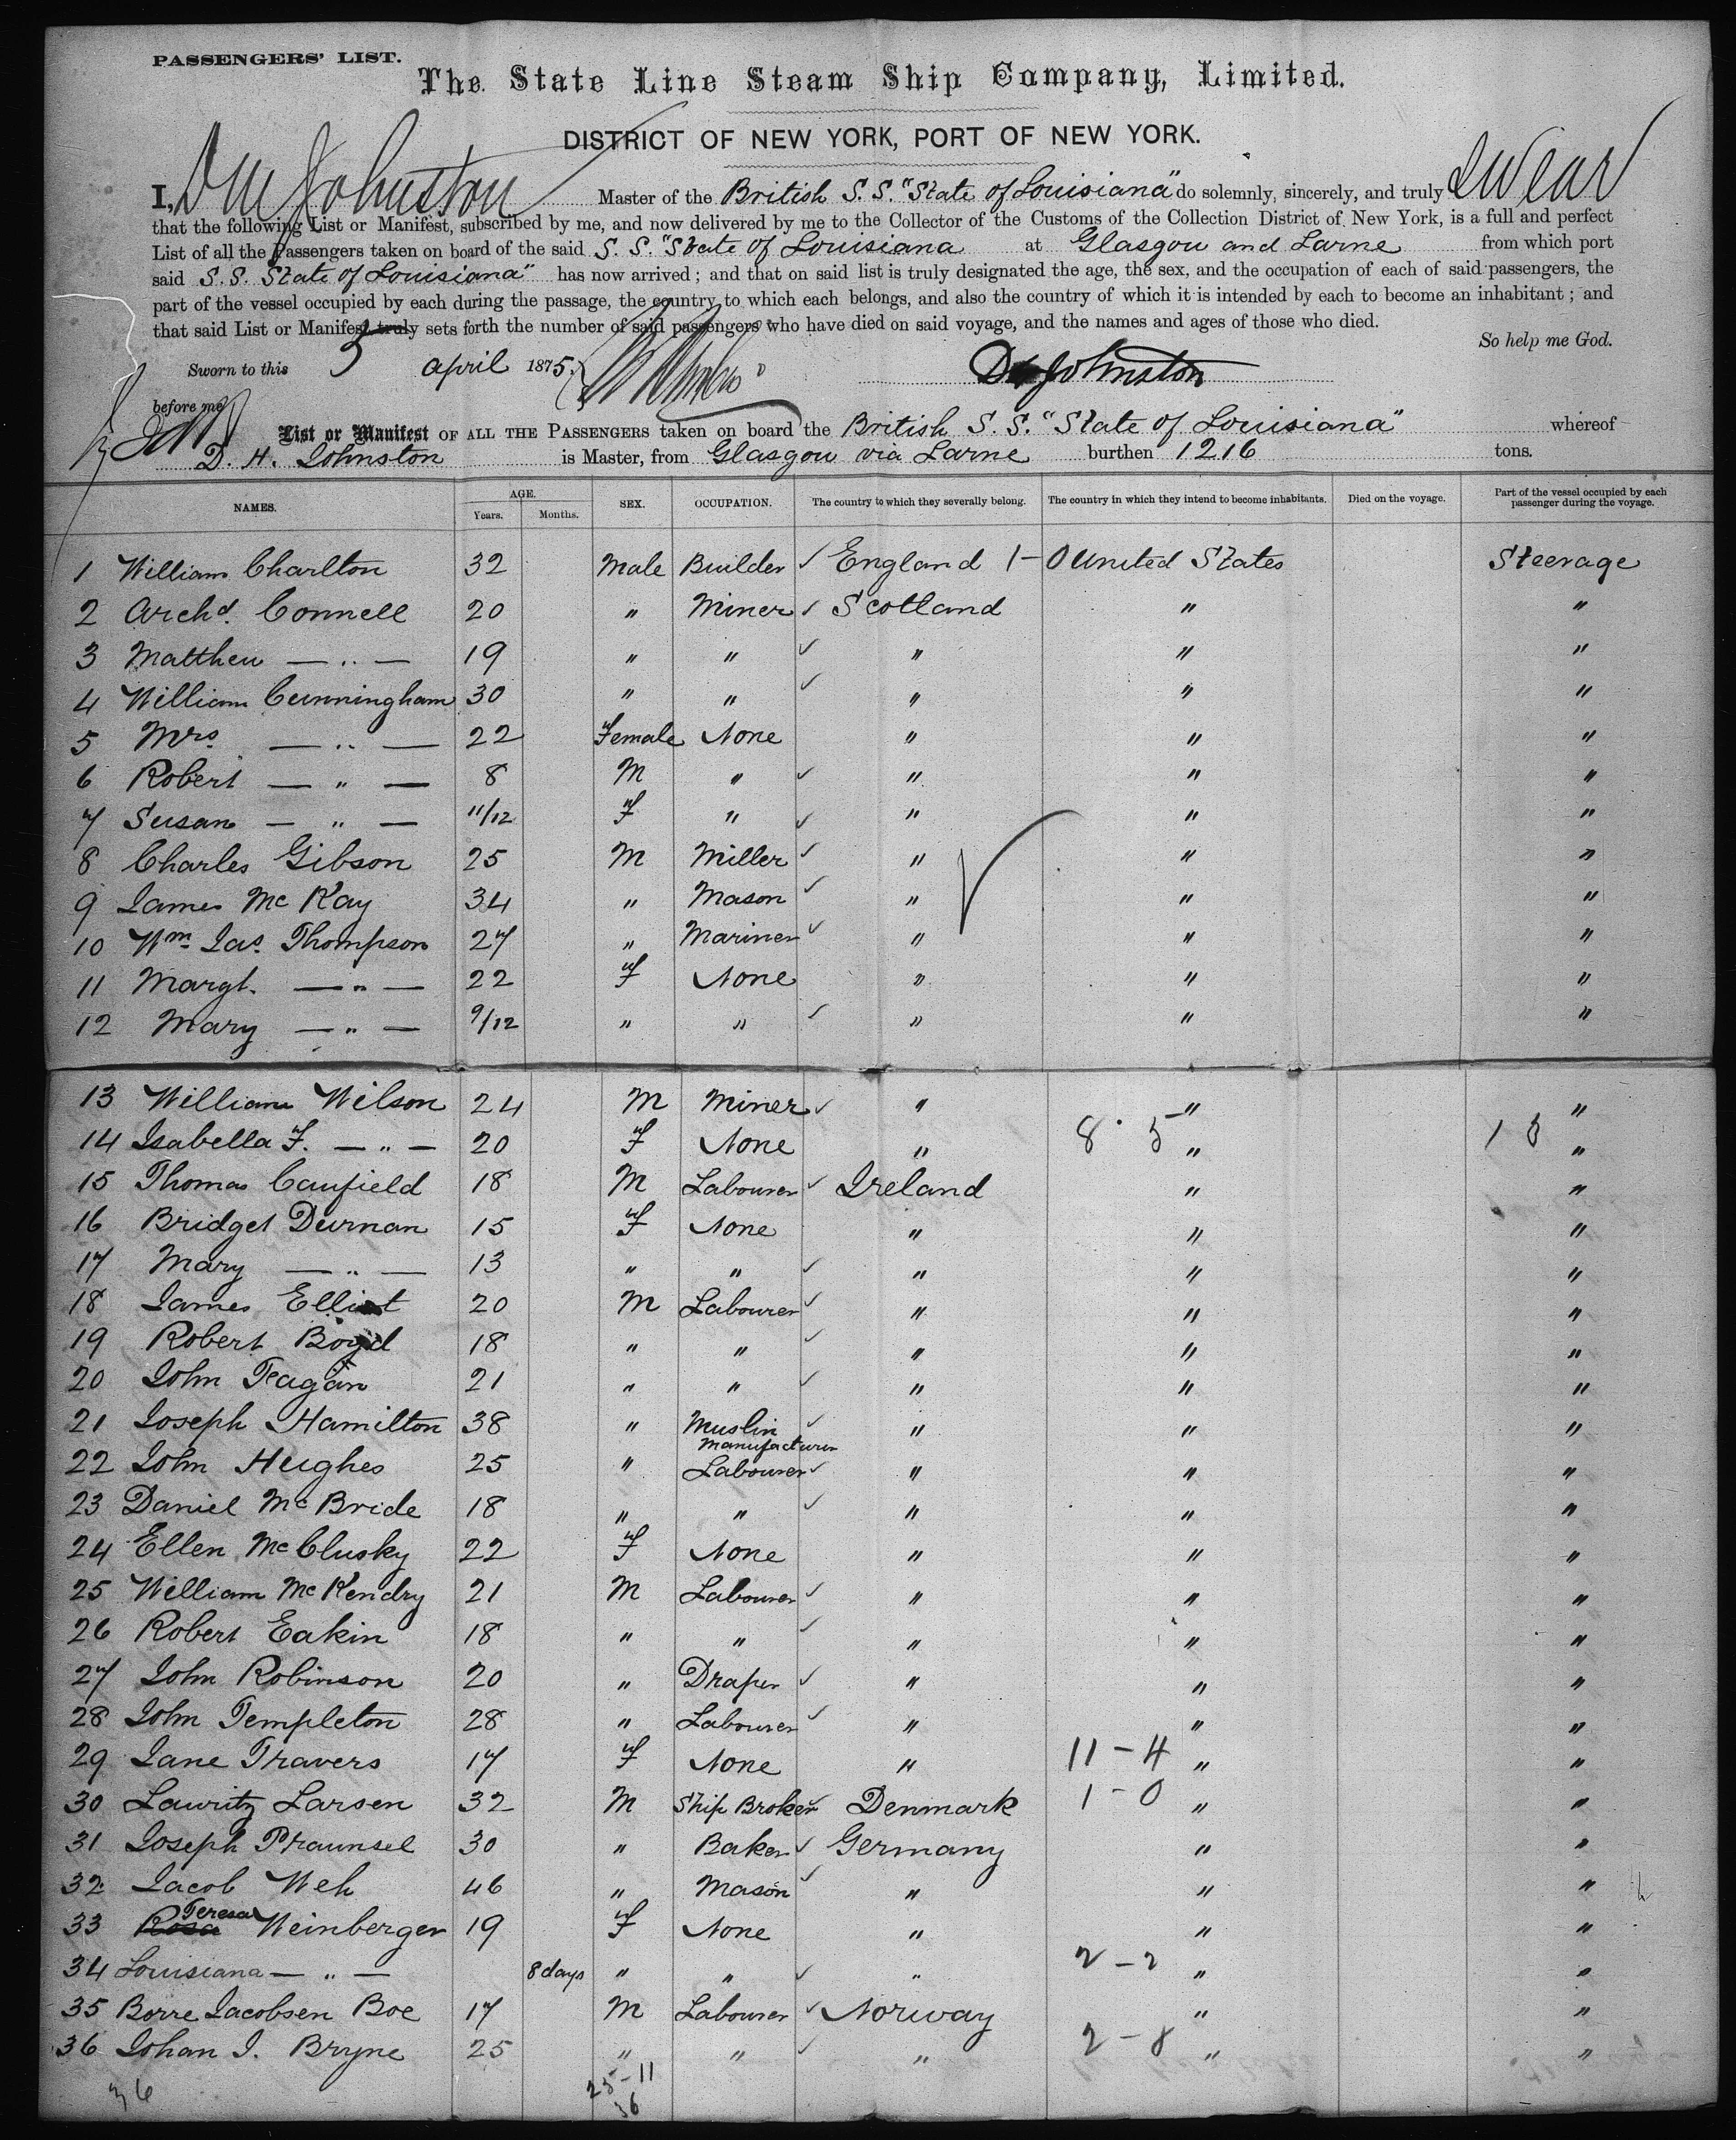 PASSENGERS' LIST.
The State Line Steam Ship Company, Limited.
DISTRICT OF NEW YORK, PORT OF NEW YORK.
I, Johnston Master of the British S.S. "State of Louisiana" do solemnly, sincerely, and truly swear
that the following List or Manifest, subscribed by me, and now delivered by me to the Collector of the Customs of the Collection District of New York, is a full and perfect
List of all the Passengers taken on board of the said S.S. "State of Louisiana at Glasgow and Larne from which port
said S.S. State of Louisiana" has now arrived; and that on said list is truly designated the age, the sex, and the occupation of each of said passengers, the
part of the vessel occupied by each during the passage, the country to which each belongs, and also the country of which it is intended by each to become an inhabitant; and
that said List or Manifest truly sets forth the number of said passengers who have died on said voyage, and the names and ages of those who died.
So help me God.
Sworn to this 5 April 1875. Johnston
before me
List or Manifest OF ALL THE PASSENGERS taken on board the British S.S. "State of Louisiana" whereof
D. H. Johnston is Master, from Glasgow via Larne burthen 1216 tons.
NAMES. AGE. Years. Months. SEX. OCCUPATION. The country to which they severally belong. The country in which they intend to become inhabitants. Died on the voyage. Part of the vessel occupied by each passenger during the voyage.
1 William Charlton 32 Male Builder ✓ England 1-0 United States Steerage
2 Archd. Connell 20 " Miner ✓ Scotland " "
3 Matthew — " — 19 " " ✓ " " "
4 William Cunningham 30 " " ✓ " " "
5 Mrs — " — 22 Female None " " "
6 Robert — " — 8 M " ✓ " " "
7 Susan — " — 11/12 F " ✓ " " "
8 Charles Gibson 25 M Miller ✓ " " "
9 James McKay 34 " Mason ✓ " " "
10 Wm Jas. Thompson 27 " Mariner ✓ " " "
11 Margt. — " — 22 F None " " "
12 Mary — " — 9/12 " " ✓ " " "
13 William Wilson 24 M Miner ✓ " " "
14 Isabella F. — " — 20 F None " 8 · 5 " 13 "
15 Thomas Caufield 18 M Labourer ✓ Ireland " "
16 Bridget Durnan 15 F None " " "
17 Mary — " — 13 " " ✓ " " "
18 James Elliot 20 M Labourer ✓ " " "
19 Robert Boyd 18 " " ✓ " " "
20 John Feagan 21 " " ✓ " " "
21 Joseph Hamilton 38 " Muslin Manufacturer ✓ " " "
22 John Hughes 25 " Labourer ✓ " " "
23 Daniel McBride 18 " " ✓ " " "
24 Ellen McClusky 22 F None " " "
25 William McKendry 21 M Labourer ✓ " " "
26 Robert Eakin 18 " " ✓ " " "
27 John Robinson 20 " Draper ✓ " " "
28 John Templeton 28 " Labourer ✓ " " "
29 Jane Travers 17 F None " 11-4 " "
30 Lauritz Larsen 32 M Ship Broker ✓ Denmark 1-0 " "
31 Joseph Praunsel 30 " Baker ✓ Germany " "
32 Jacob Weh 46 " Mason ✓ " " "
33 Rosa Teresa Weinberger 19 F None " " "
34 Louisiana — " — 8 days " " ✓ " 2-2 " "
35 Borre Jacobsen Boe 17 M Labourer ✓ Norway " "
36 Johan J. Bryne 25 " " ✓ " 2-8 " "
36 25-11
36